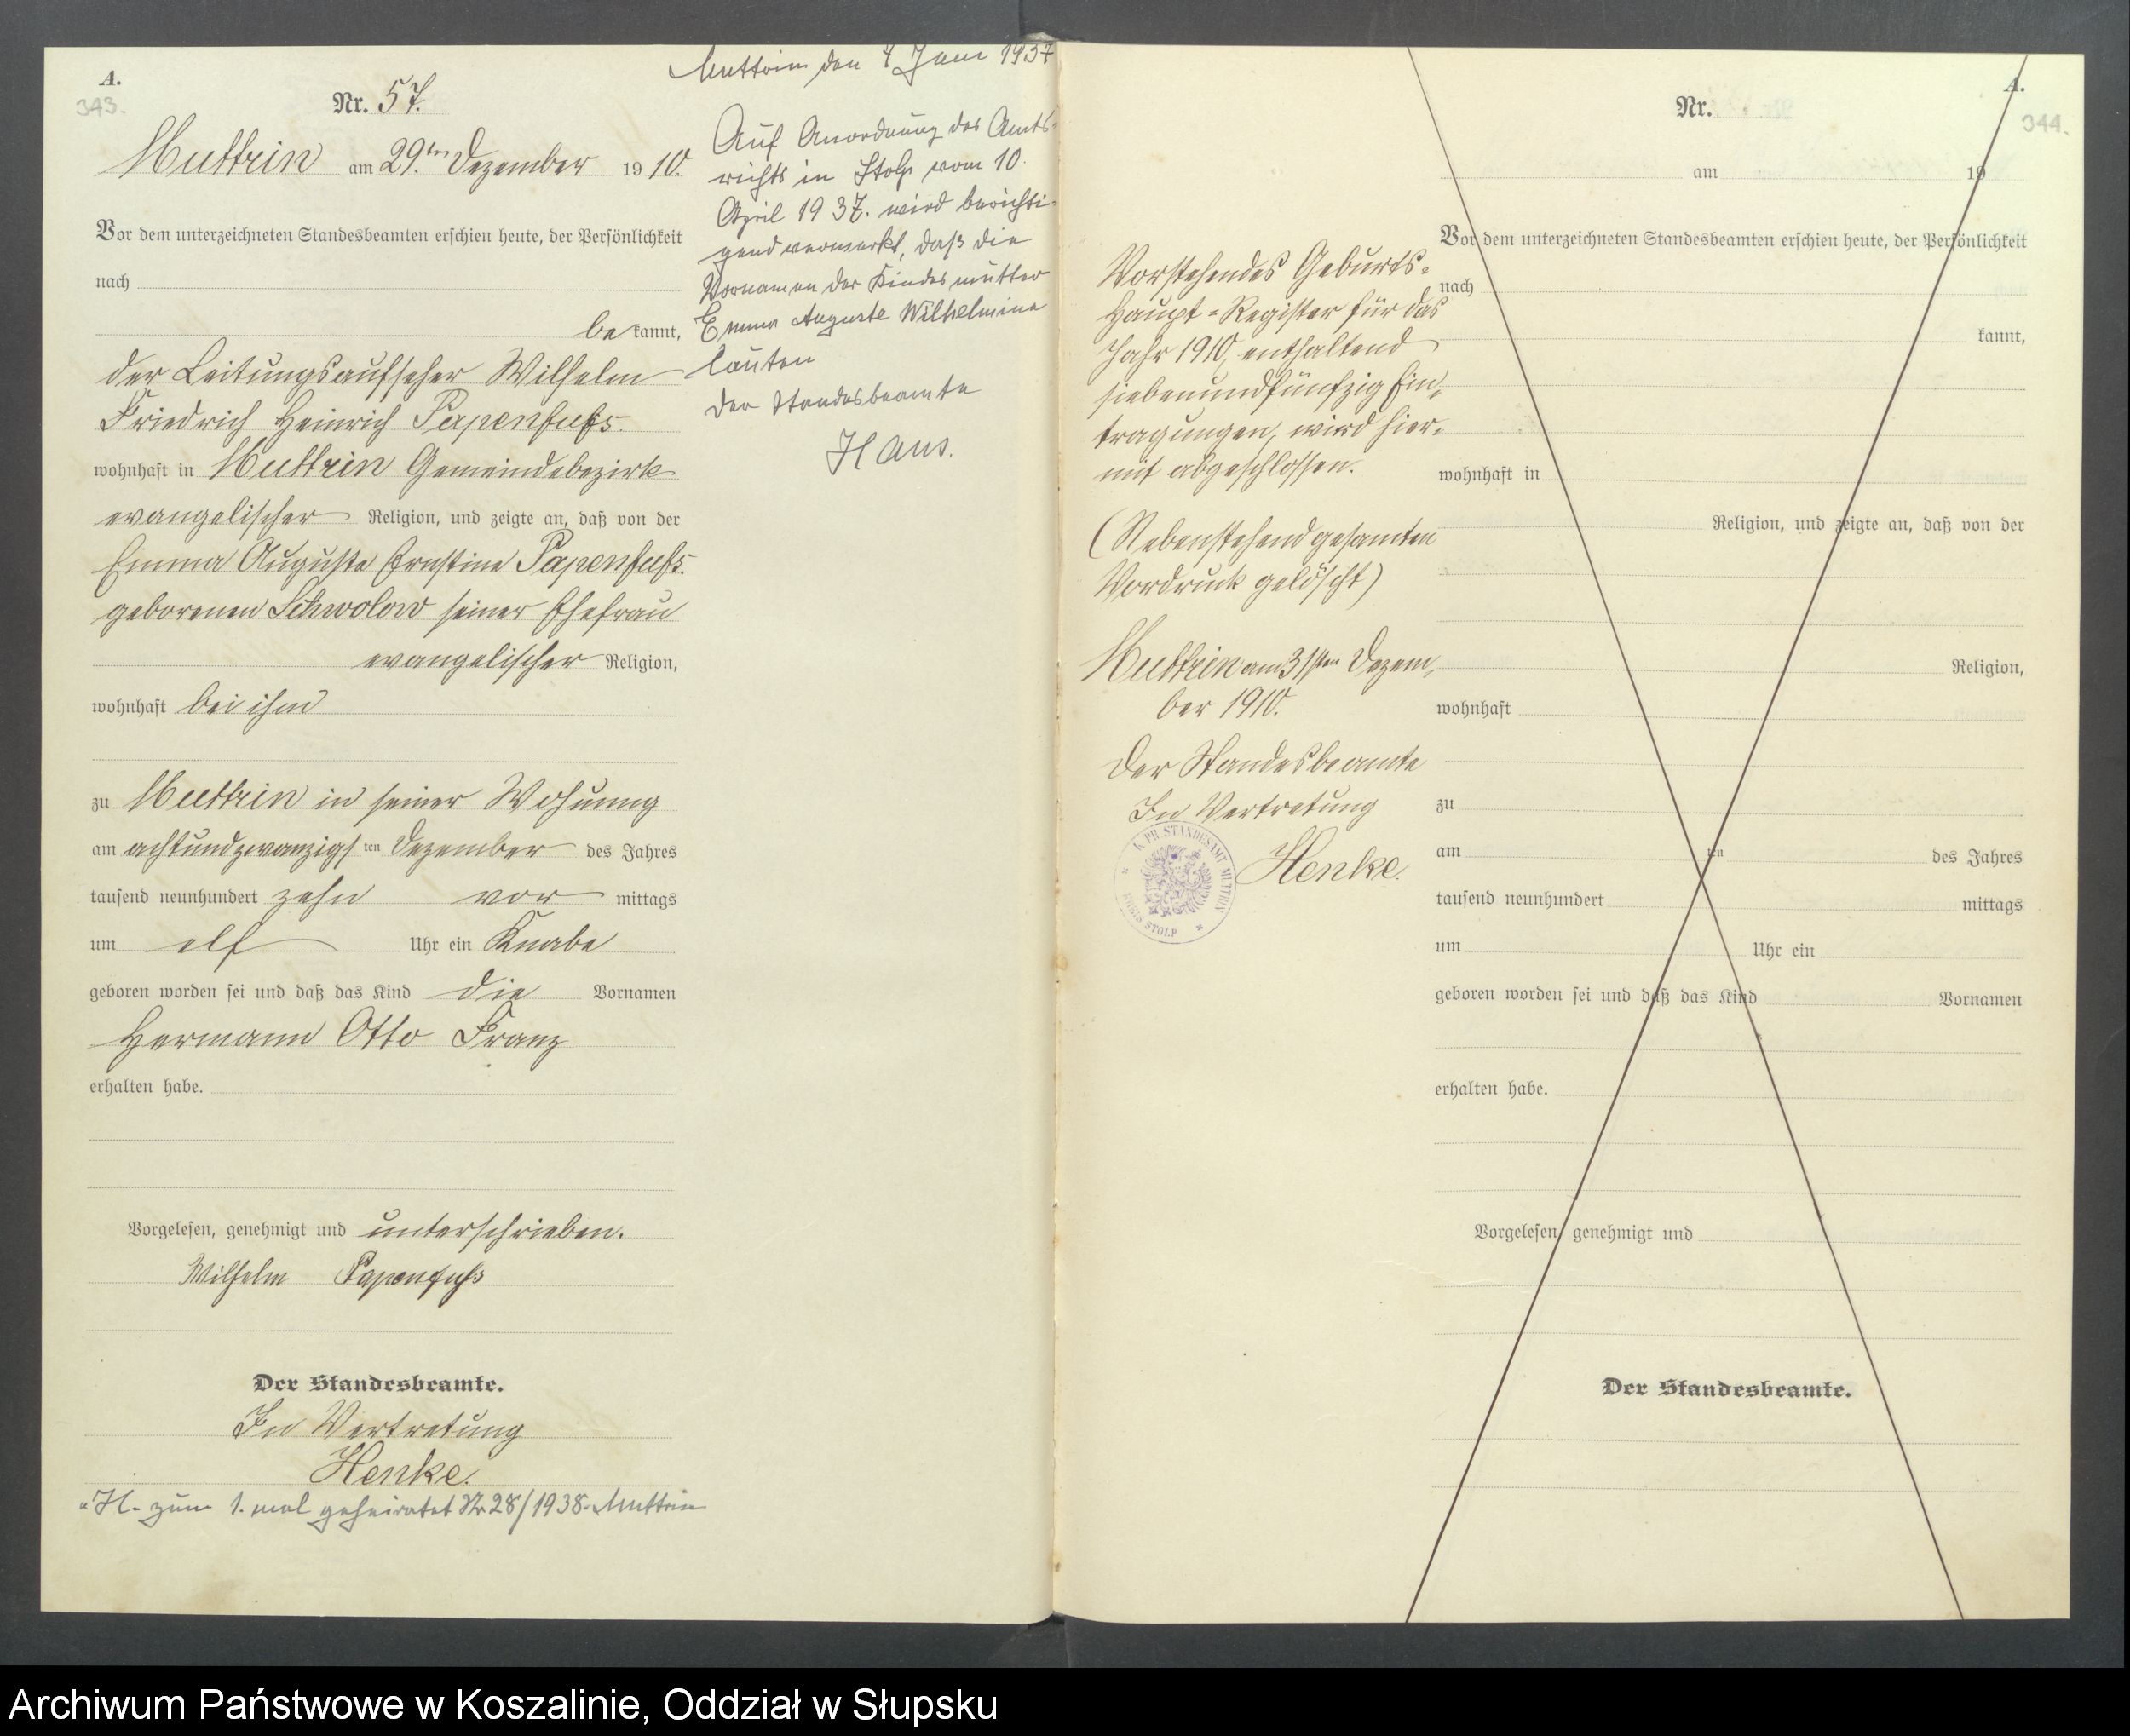 A.
343.
Nr. 57.
Muttrin am 29ten Dezember 1910.
Vor dem unterzeichneten Standesbeamten erschien heute, der Persönlichkeit
nach
be kannt,
der Leitungsaufseher Wilhelm
Friedrich Heinrich Papenfuß.
wohnhaft in Muttrin Gemeindebezirk
evangelischer Religion, und zeigte an, daß von der
Emma Auguste Ernstine Papenfuß.
geborenen Schwolow seiner Ehefrau
evangelischer Religion,
wohnhaft bei ihm
zu Muttrin in seiner Wohnung
am achtundzwanzigsten Dezember des Jahres
tausend neunhundert zehn vor mittags
um elf Uhr ein Knabe
geboren worden sei und daß das Kind die Vornamen
Hermann Otto Franz
erhalten habe.
Vorgelesen, genehmigt und unterschrieben.
Wilhelm Papenfuß
Der Standesbeamte.
In Vertretung
Henke.
H. zum 1. mal geheiratet Nr 28/1938 Muttrin
Muttrin den 4 Juni 1937
Auf Anordnung des Amts-
richts in Stolp vom 10.
April 1937. wird berichti-
gend vermerkt, daß die
Vornamen der Kindesmutter
Emma Auguste Wilhelmine
lauten
Der Standesbeamte
Haus.
Vorstehendes Geburts-
Haupt-Register für das
Jahr 1910, enthaltend
siebenundfünfzig Ein-
tragungen, wird hier-
mit abgeschlossen.
(Nebenstehend gesamten
Vordruck gelöscht)
Muttrin am 31sten Dezem-
ber 1910.
Der Standesbeamte
In Vertretung
Henke.
K. PR. STANDESAMT MUTTRIN
KREIS STOLP
A.
344.
Nr.
am 19
Vor dem unterzeichneten Standesbeamten erschien heute, der Persönlichkeit
nach
kannt,
wohnhaft in
Religion, und zeigte an, daß von der
Religion,
wohnhaft
zu
am ten des Jahres
tausend neunhundert mittags
um Uhr ein
geboren worden sei und daß das Kind Vornamen
erhalten habe.
Vorgelesen, genehmigt und
Der Standesbeamte.
Archiwum Państwowe w Koszalinie, Oddział w Słupsku